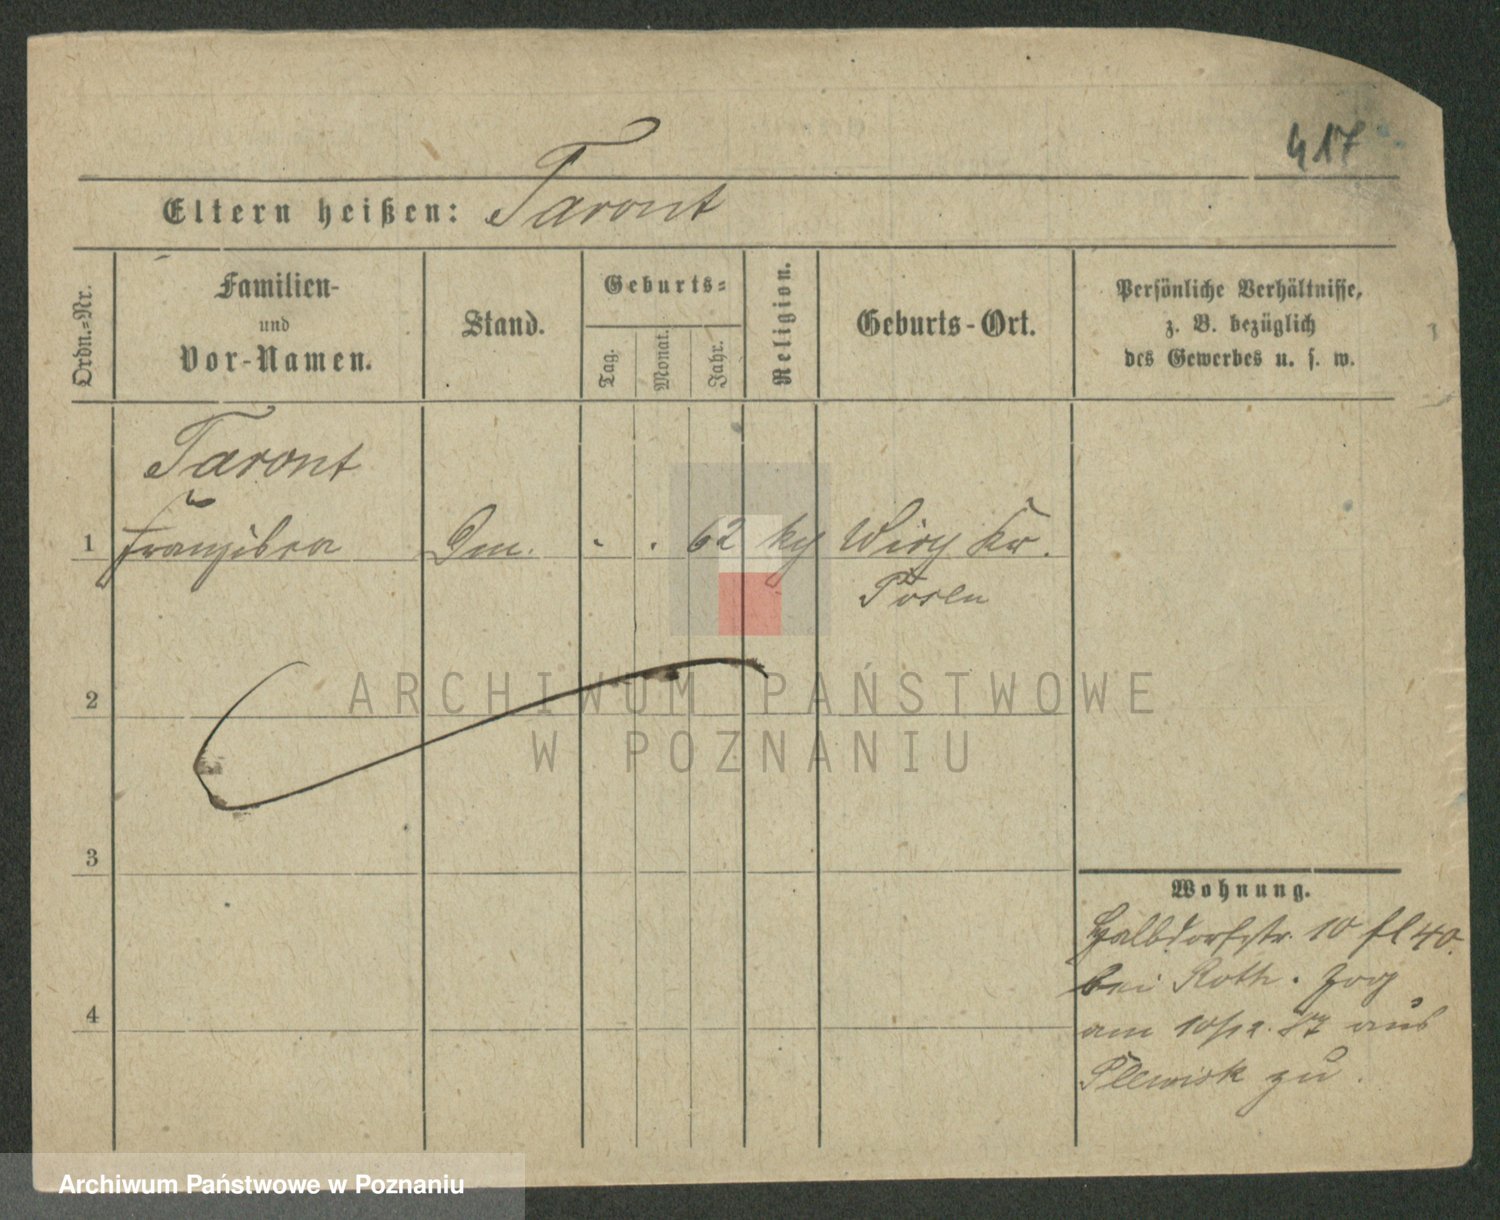 417
Eltern heißen: Taront
Ordn.-Nr.
Familien-
und
Vor-Namen.
Stand.
Geburts-
Tag.
Monat.
Jahr.
Religion.
Geburts-Ort.
Persönliche Verhältnisse,
z. B. bezüglich
des Gewerbes u. s. w.
Taront
1 Franziska . . 62 Wiry Kr.
Posen
2
3
4
Wohnung.
Halbdorfstr. 10 fl 40.
bei Roth. zog
am 10/12. 87 aus
Plewisk zu.
ARCHIWUM PAŃSTWOWE
W POZNANIU
Archiwum Państwowe w Poznaniu